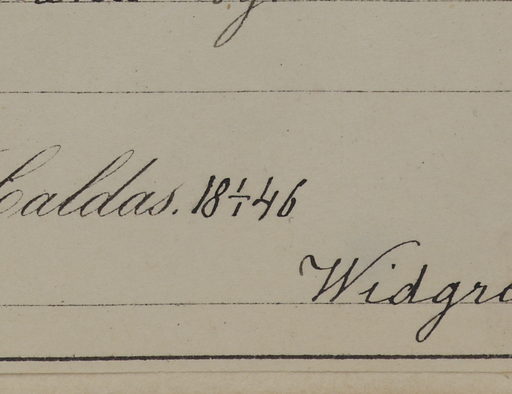 Caldas. 18 1/1 46
Widgre